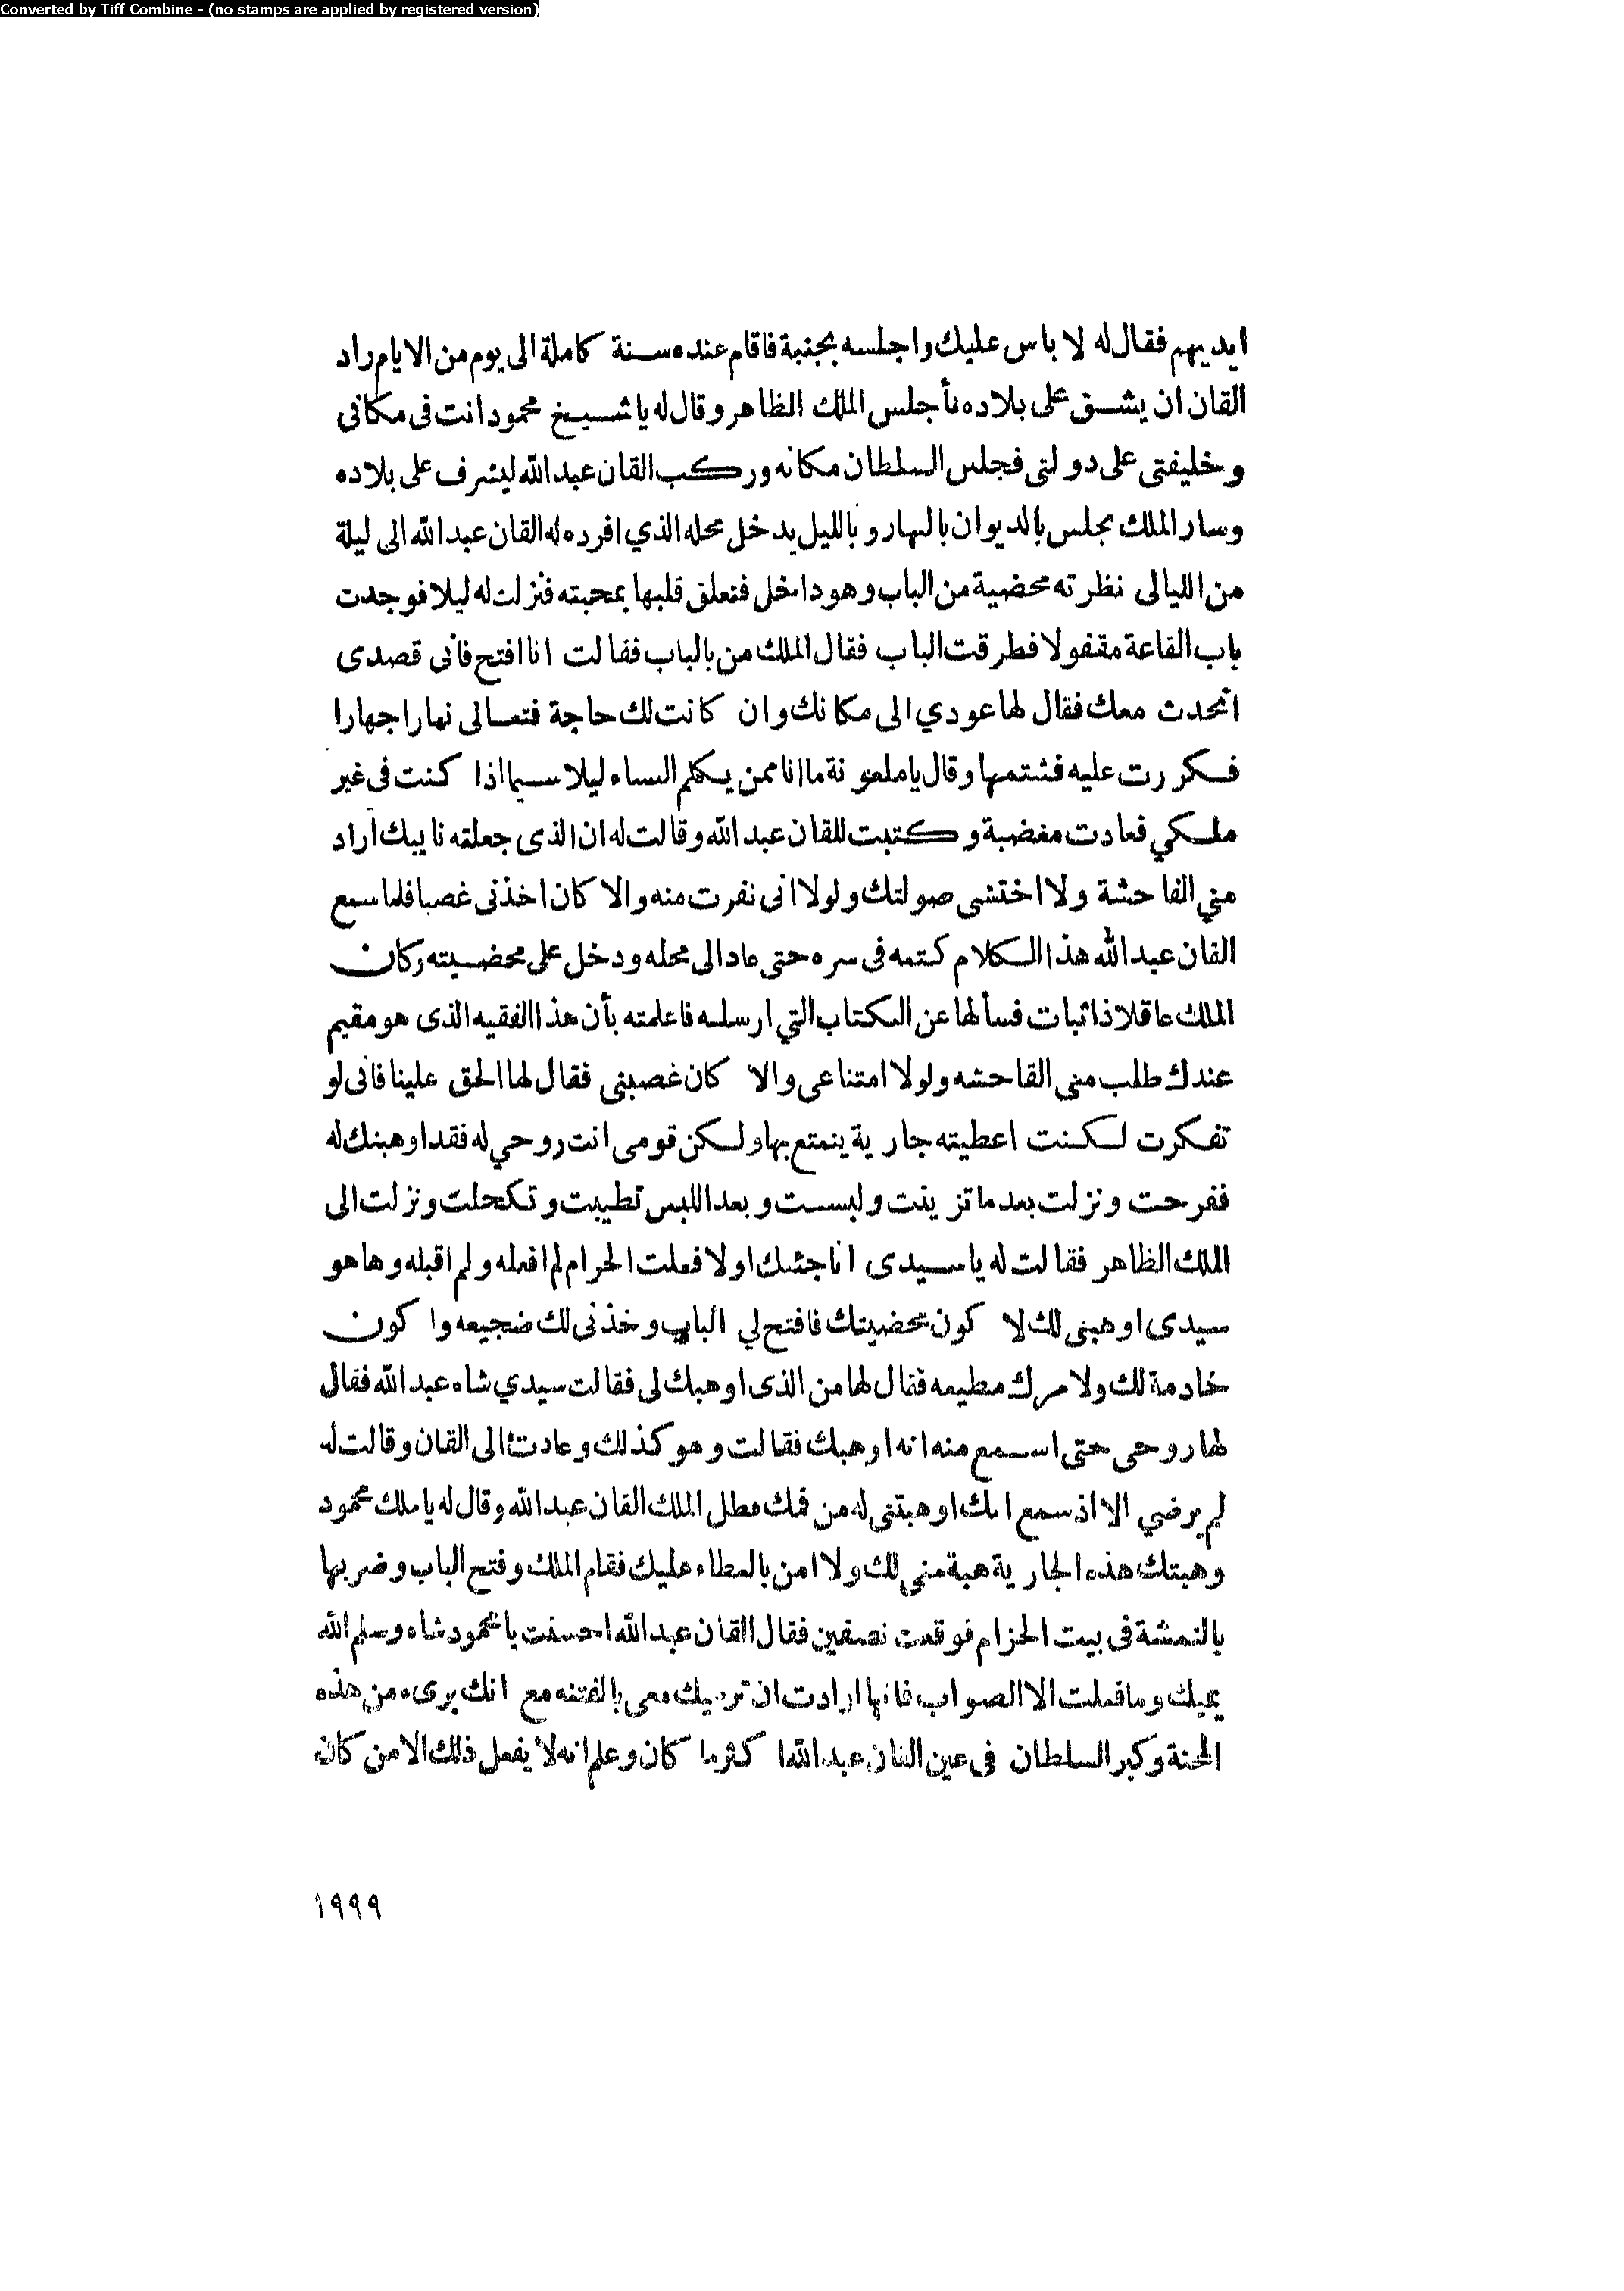 Converted by Tiff Combine - (no stamps are applied by registered version)
ايديهم فقال له لا باس عليك واجلسه بجنبة فاقام عنده سنة كاملة الى يوم من الايام راد
القان ان يشق على بلاده فأجلس الملك الظاهر وقال له يا شيخ محمود انت فى مكانى
وخليفتى على دولتى فجلس السلطان مكانه وركب القان عبد الله ليشرف على بلاده
وسار الملك يجلس بالديوان بالنهار وبالليل يدخل محله الذي افرده له القان عبد الله الى ليلة
من الليالى نظرته محضية من الباب وهو داخل فتعلق قلبها بمحبته فنزلت له ليلا فوجدت
باب القاعة مقفولا فطرقت الباب فقال الملك من بالباب فقالت انا افتح فانى قصدى
اتحدث معك فقال لها عودي الى مكانك وان كانت لك حاجة فتعالى نهارا جهارا
فكررت عليه فشتمها وقال يا ملعونة ما انا ممن يكلم النساء ليلا سيما اذا كنت فى غير
ملكي فعادت مغضبة وكتبت للقان عبد الله وقالت له ان الذى جعلته نايبك اراد
مني الفاحشة ولا اختشى صولتك ولولا انى نفرت منه والا كان اخذنى غصبا فلما سمع
القان عبد الله هذا الكلام كتمه فى سره حتى عاد الى محله ودخل على محضيته وكان
الملك عاقلا ذا ثبات فسألها عن الكتاب التي ارسلته فاعلمته بأن هذا الفقيه الذى هو مقيم
عندك طلب منى القاحشه ولولا امتناعى والا كان غصبنى فقال لها الحق علينا فانى لو
تفكرت لكنت اعطيته جارية يتمتع بها ولكن قومى انت روحي له فقد اوهبتك له
ففرحت ونزلت بعد ما تزينت ولبست وبعد اللبس تطيبت وتكحلت ونزلت الى
الملك الظاهر فقالت له يا سيدى انا جئتك اولا فعلت الحرام لم افعله ولم اقبله وها هو
سيدى اوهبنى لك لا كون محضيتك فافتح لي الباب وخذنى لك ضجيعه واكون
خادمة لك ولامرك مطيعه فقال لها من الذى اوهبك لى فقالت سيدي شاه عبد الله فقال
لها روحى حتى اسمع منه انه اوهبك فقالت وهو كذلك وعادت الى القان وقالت له
لم يرضي الا اذ سمع انك اوهبتنى له من فمك فطل الملك القان عبد الله وقال له يا ملك محمود
وهبتك هذه الجارية هبة مني لك ولا امن بالعطاء عليك فقام الملك وفتح الباب وضربها
بالنمشة فى بيت الحزام فوقعت نصفين فقال القان عبد الله احسنت يا محمود شاه وسلم الله
يمينك وما فعلت الا الصواب فانها ارادت ان ترميك معى بالفتنه مع انك برىء من هذه
المحنة وكبر السلطان فى عين القان عبد الله اكثر ما كان وعلم انه لا يفعل ذلك الا من كان
١٩٩٩